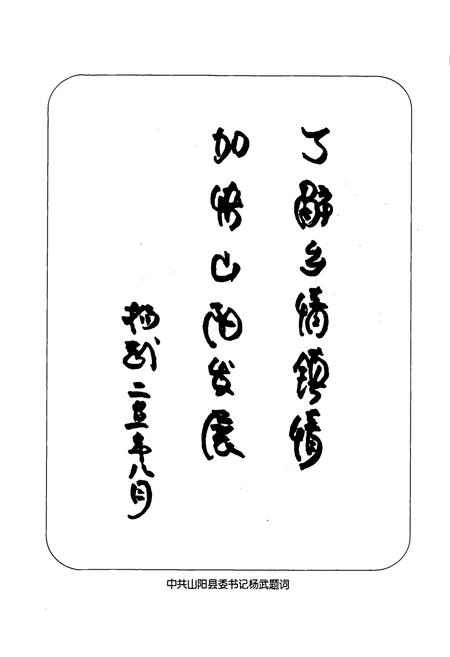 了解乡情镇情
加快山阳发展
杨武二〇〇五年八月
中共山阳县委书记杨武题词